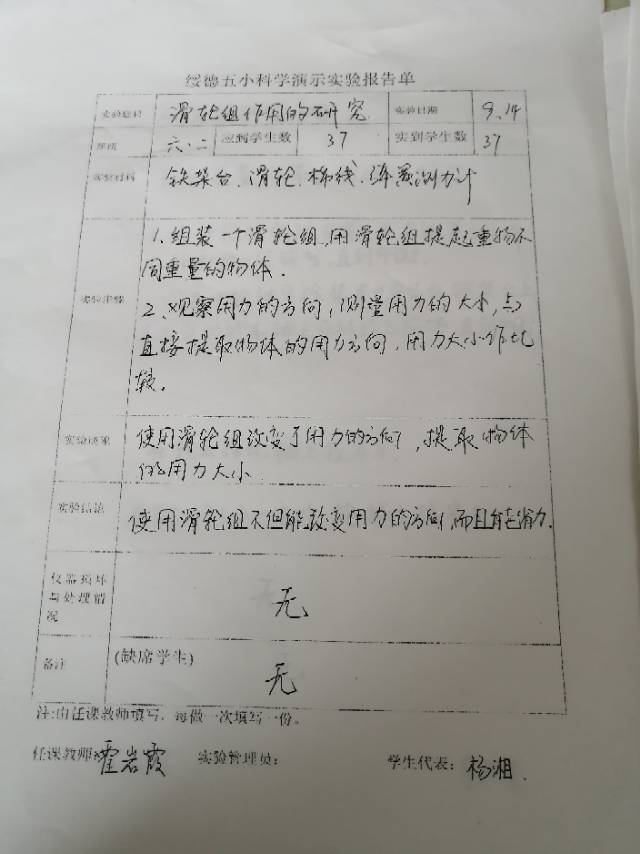 绥德五小科学演示实验报告单
实验题目 滑轮组作用的研究 实验日期 9.14
班级 六.二 应到学生数 37 实到学生数 37
实验材料 铁架台、滑轮、棉线、弹簧测力计
1.组装一个滑轮组,用滑轮组提起重物不
同重量的物体.
实验步骤
2、观察用力的方向,测量用力的大小,与
直接提取物体的用力方向,用力大小作比
较.
实验现象 使用滑轮组改变了用力的方向,提取物体
的用力大小
实验结论 使用滑轮组不但能改变用力的方向,而且能省力.
仪器损坏
与处理情 无
况
备注 (缺席学生)
无
注:由任课教师填写,每做一次填写一份。
任课教师:霍岩霞 实验管理员: 学生代表:杨湘